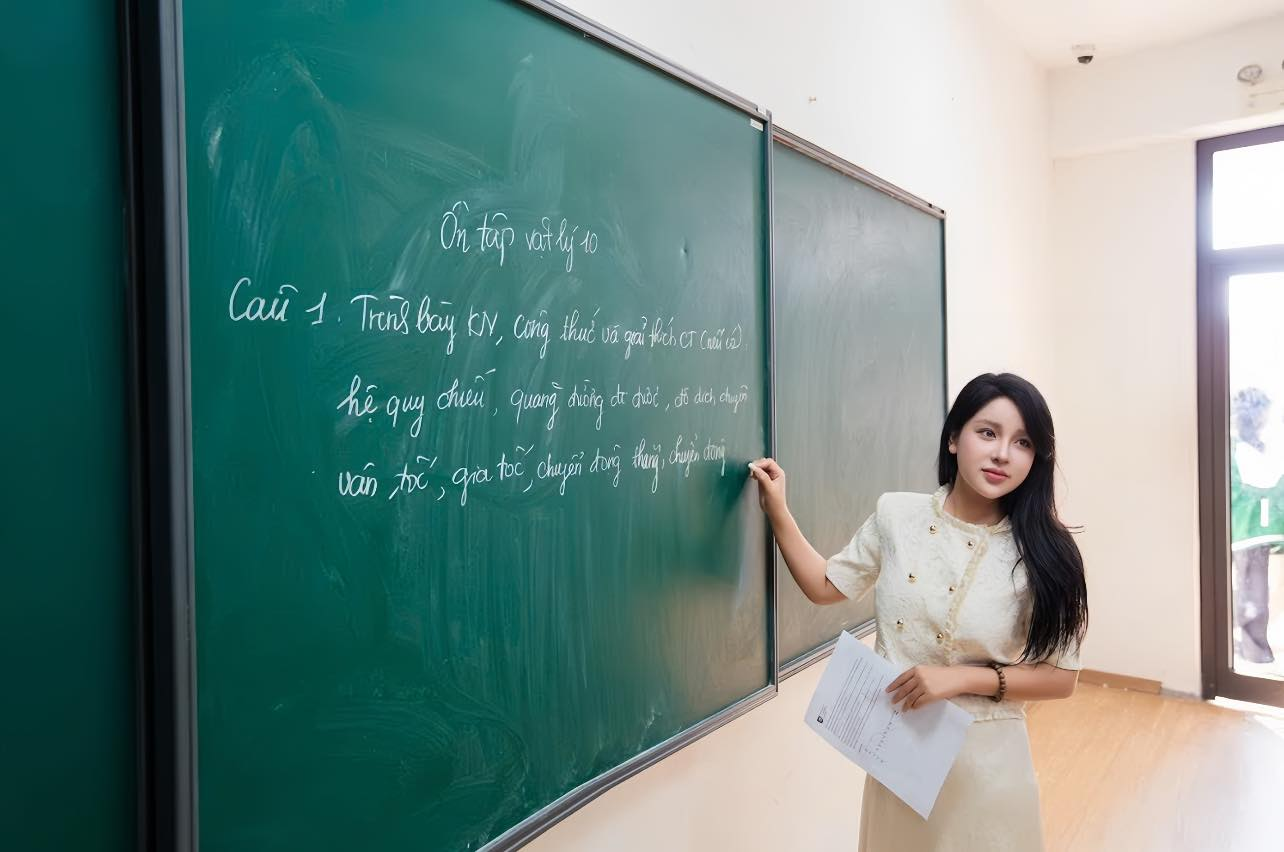 Ôn tập vật lý 10
Câu 1. Trình bày KN, công thức và giải thích CT (nếu có).
hệ quy chiếu, quãng đường đi được, độ dịch chuyển
vận tốc, gia tốc, chuyển động thẳng, chuyển động